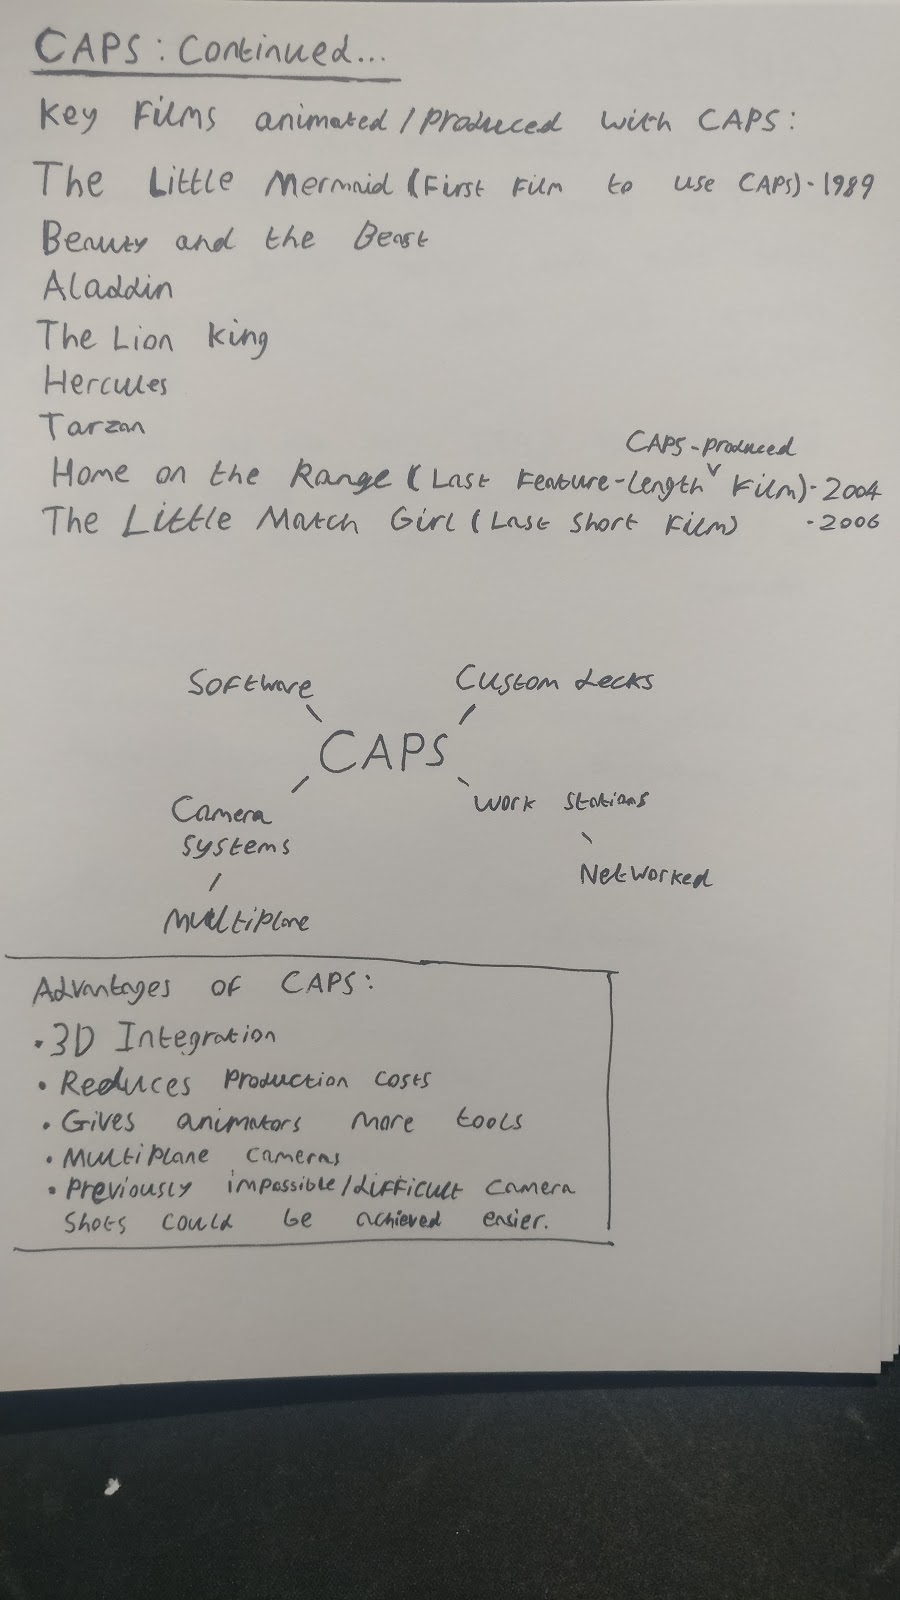 CAPS: Continued...
Key Films animated/produced with CAPS:
The Little Mermaid (First Film to use CAPS) - 1989
Beauty and the Beast
Aladdin
The Lion King
Hercules
Tarzan
CAPS-produced
Home on the Range (Last Feature-length Film) - 2004
The Little Match Girl (Last Short Film) - 2006
Software
Custom decks
CAPS
Camera
systems
Multiplane
Work stations
Networked
Advantages of CAPS:
• 3D Integration
• Reduces production costs
• Gives animators more tools
• Multiplane cameras
• Previously impossible/difficult camera
shots could be achieved easier.